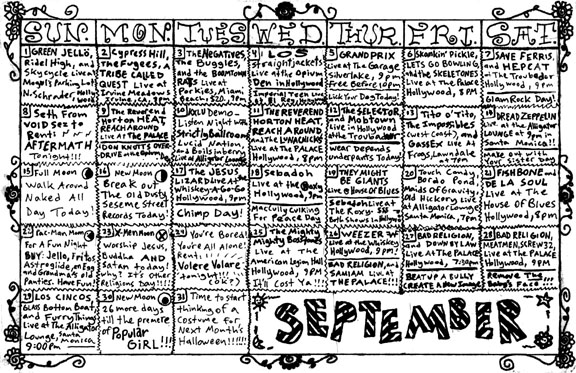 SUN. MON. TUES WED. THUR. FRI. SAT
1 GREEN JELLÖ,
Ridel High, and
Skycycle live at
Magnolia's Parking Lot
N. Schrader Hollywood
2 Cypress Hill,
the Fugees, a
TRIBE CALLED
QUEST Live at
Irvine Meadows
3 The NEGATIVES,
The Buggles,
and the BOOMTOWN
RATS Live at
Porkies, Miami
Beach, $20, 9pm
4 LOS
Straightjackets
Live at the Opium
Den in Hollywood
Imperial Teen Live
5 GRANDPRIX
Live at the Garage
Silverlake, 9pm
Free Before 10pm
Lick Your Dog Today
6 Skankin' Pickle,
LETS GO BOWLING
and the SKELETONES
Live at The Palace
Hollywood, 8pm
7 SAVE FERRIS,
and HEPCAT
at The Troubador
Hollywood, 9pm
Glam Rock Day!
8 Seth From
VOID sez to
Rent!
AFTERMATH
Tonight!!!
9 The Reverend
Horton HEAT,
REACH AROUND
Live AT The PALACE
DON KNOTTS OVER
DRIVE
10 KXLU DEMO-
Listen Night with
Strictly Ballroom
Lucia Nation
and Boils in Berny
Live at Alligator Lounge
11 THE REVEREND
HORTON HEAT,
REACH AROUND
and the LYNACHICKS
Live AT The PALACE
Hollywood, 8pm
12 The SELECTOR
and Mobtown
Live in Hollywood
at the Troubador
wear Depends
underpants Today!
13 Tito o' Tito,
The Impossibles
(Gulf Coast), and
Gassex Live AT
Frogs, Lawndale
14 DREAD ZEPPELIN
Live at the Alligator
LOUNGE at 9pm in
Santa Monica!!
make out with
your sister Day
15 Full Moon
Walk Around
Naked All
Day Today!
16 New Moon
Break out
The Old Dusty
Seseme Street
Records Today!
17 The JESUS
LIZARD Live at the
Whiskey-A-Go-Go
Hollywood, 9pm
Chimp Day!
18 Sebadoh
Live at the Roxy
Hollywood, 9pm
Macully Culking
For Peace Day
19 THEY MIGHT
BE GIANTS
Live @ House of Blues
Sebadoh Live at
The Roxy- $$$
Both Shows in Hollywood
20 Touch Candy,
Bordo Pond,
Maids Of Gravity
Old Hickory Live
at Alligator Lounge
Santa Monica, 7pm
21 FISHBONE and
DE LA SOUL
Live at The
House of Blues
Hollywood, 8pm
22 Pac-Man Moon
For A Fun Night
BUY: Jello, Fritos,
Astroglide, an Egg
and Grandma's old
Panties. Have Fun!
23 X-Men Moon
worship Jesus,
Buddha AND
Satan today!
why? It's Other
Religions Day!!!!
24 You're Bored!
You're All Alone
Rent
Volere Volare
tonight
25 The Mighty
Mighty Bosstones
Live AT the
American Legion Hall
Hollywood, 9PM
It'll Cost Ya!!!!
26 WEEZER at
Live at the Whiskey
Hollywood, 8pm!
BAD RELIGION, and
SAMIAM Live at
THE PALACE!!!
27 BAD RELIGION,
and DOWN BY LAW
Live AT The PALACE
Hollywood, 7:30pm
BEAT UP A BULLY
28 BAD RELIGION,
MEATMEN, SCREW32,
Live at The PALACE
Hollywood, 9pm
Remove The
Baby's Face
29 LOS CINCOS,
GLASS Bottom Boat,
and Furry Things
Live at the Alligator
Lounge, Santa Monica
9:00pm
30 New Moon
26 more days
till the premiere
of Popular
GIRL!!!
31 Time to start
thinking of a
Costume for
Next Month's
Halloween!!!!!
SEPTEMBER